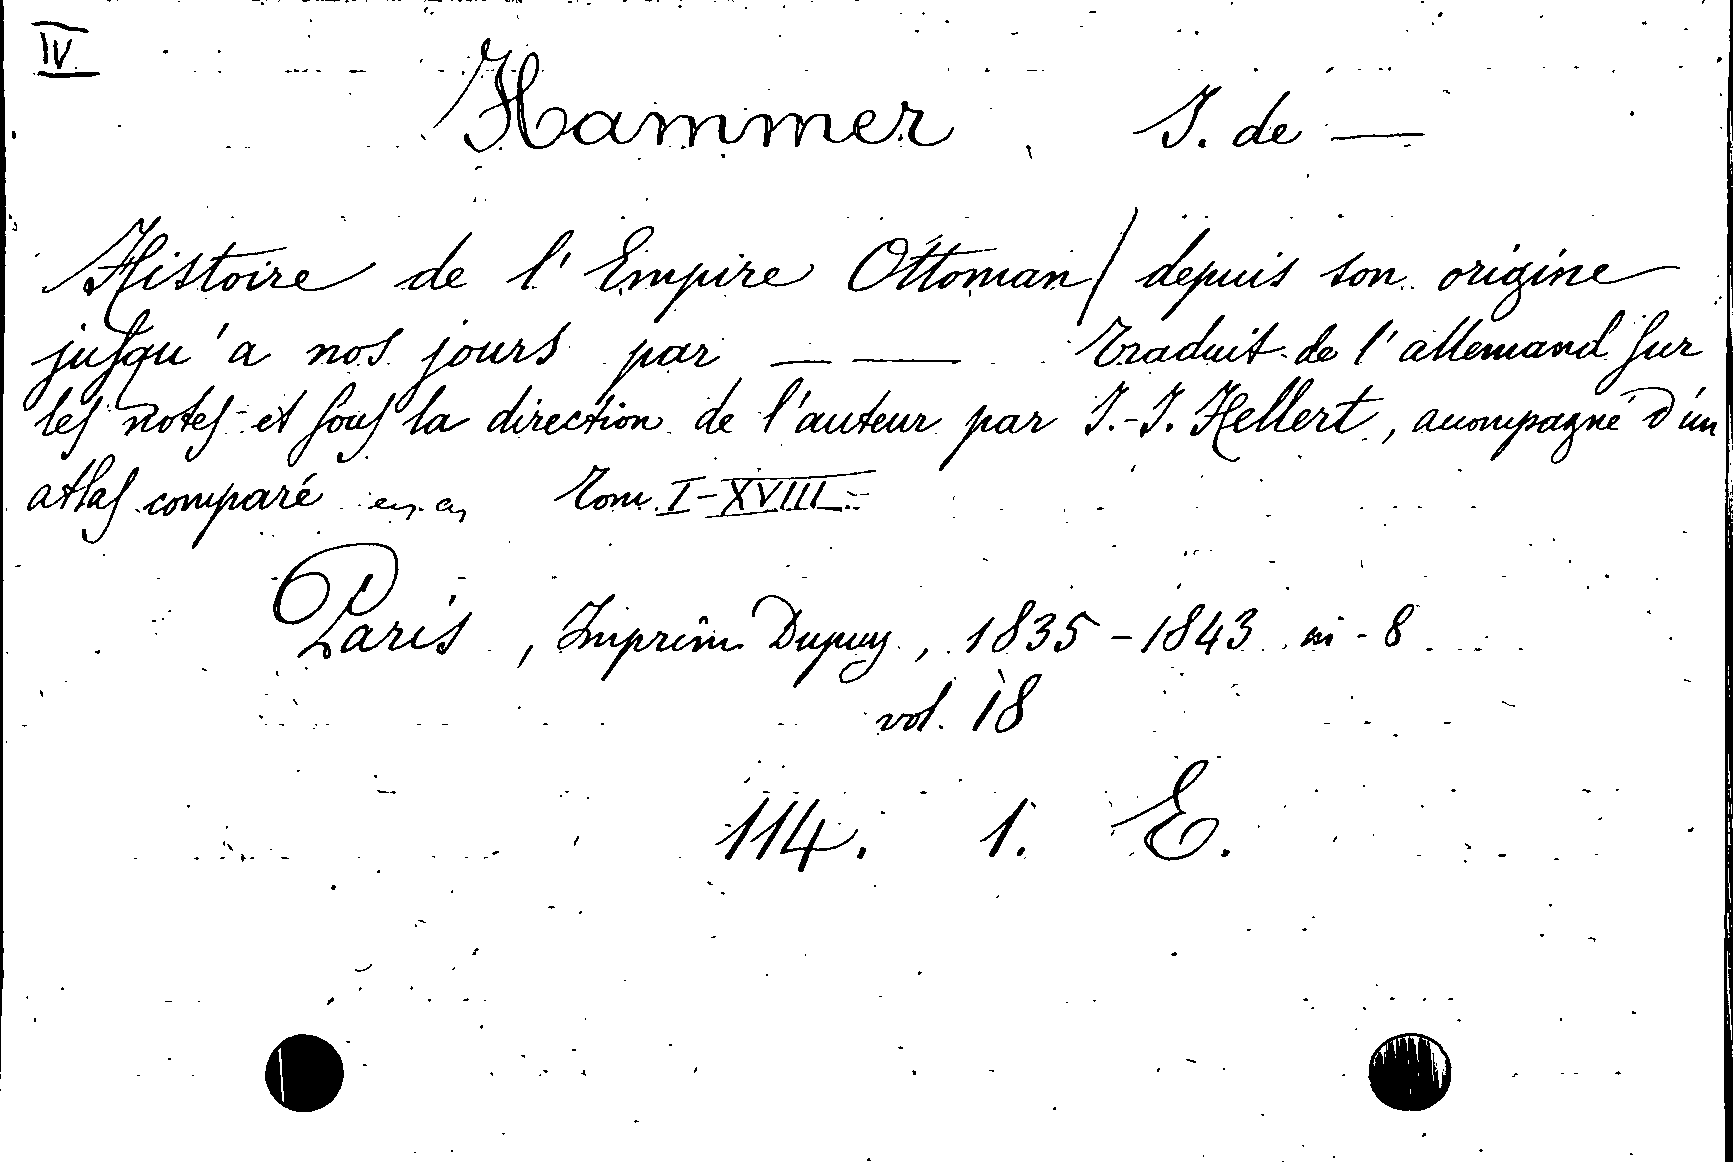 IV
Hammer, J. de —
Histoire de l'Empire Ottoman / depuis son origine
jusqu'a nos jours par — — traduit de l'allemand sur
les notes et sous la direction de l'auteur par J.-J. Hellert, acompagné d'un
atlas comparé Tom I-XVIII
Paris, Imprim Dupuy, 1835-1843 in-8
vol. 18
114. 1. E.